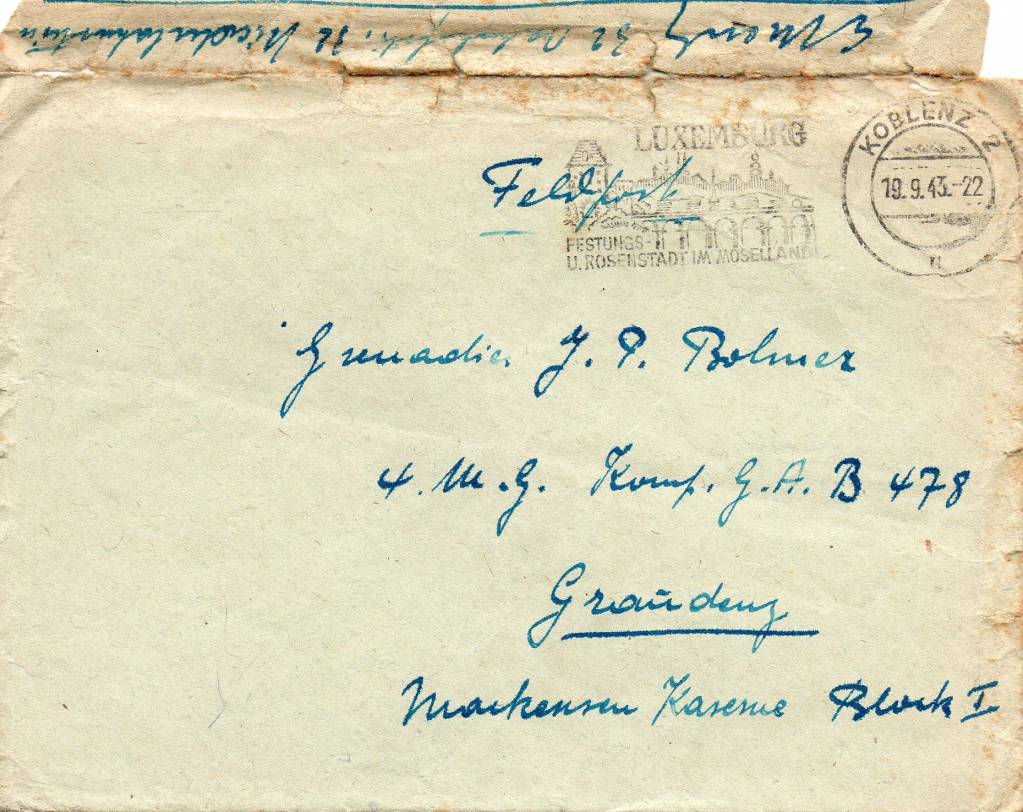 32 Niederlahnstein
LUXEMBURG
FESTUNGS-
U. ROSENSTADT IM MOSELLAND
KOBLENZ 2
19.9.43.-22
n
Feldpost
Grenadier J. P. Bolmer
4. M.G. Komp. G.A. B 478
Graudenz
Mackensen Kaserne Block I